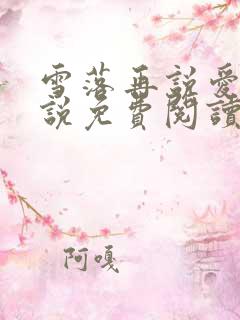 雪落再說愛
說免費閱讀
阿嘎